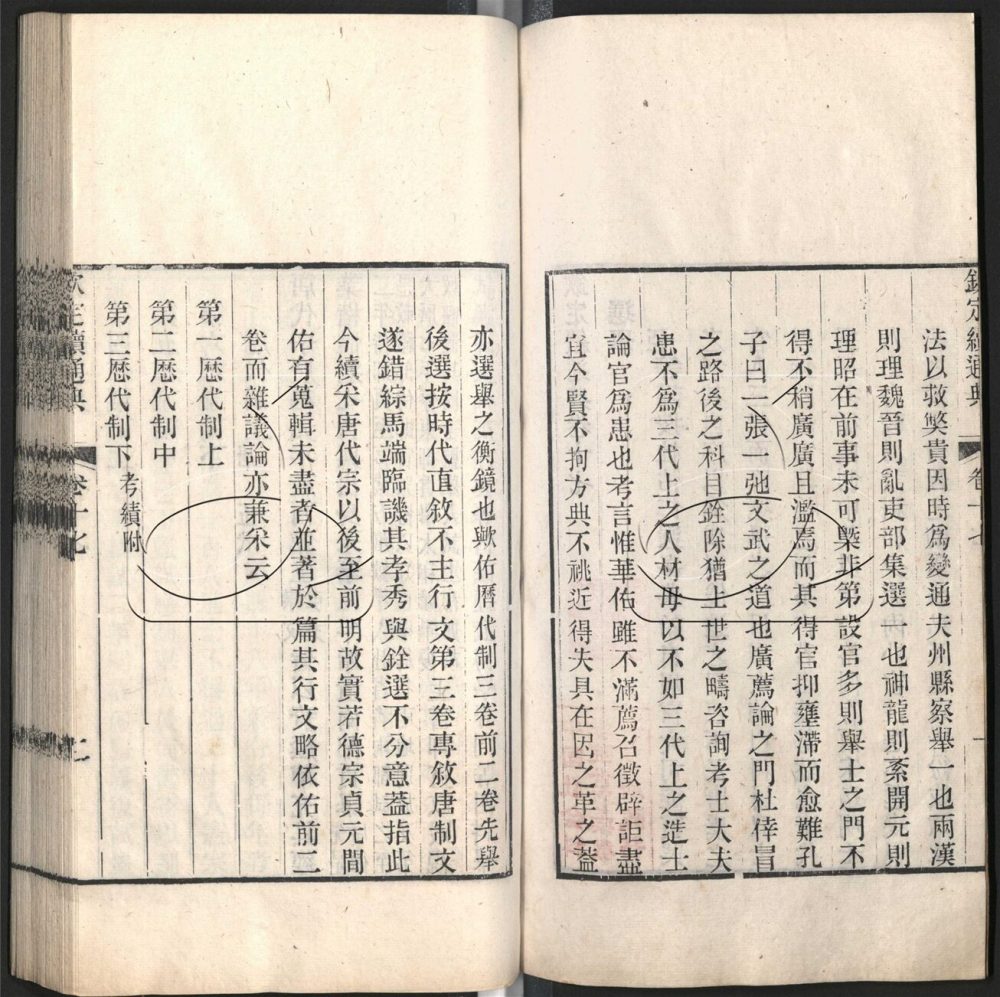 欽定續通典 卷十七
法以救弊貴因時爲變通夫州縣察舉一也兩漢
則理魏晉則亂吏部集選一也神龍則紊開元則
理昭在前事未可槩非第設官多則舉士之門不
得不稍廣廣且濫焉而其得官抑壅滯而愈難孔
子曰一張一弛文武之道也廣薦論之門杜倖冒
之路後之科目銓除猶上世之疇咨詢考士大夫
患不爲三代上之人材毋以不如三代上之造士
論官爲患也考言惟華佑雖不滿薦召徵辟詎盡
宜今賢不拘方典不祧近得失具在因之革之蓋
亦選舉之衡鏡也歟佑曆代制三卷前二卷先舉
後選按時代直敘不主行文第三卷專敘唐制文
遂錯綜馬端臨譏其孝秀與銓選不分意蓋指此
今續采唐代宗以後至前明故實若德宗貞元間
佑有蒐輯未盡者並著於篇其行文略依佑前二
卷而雜議論亦兼采云
第一歷代制上
第二歷代制中
第三歷代制下 考績附
欽定續通典 卷十七